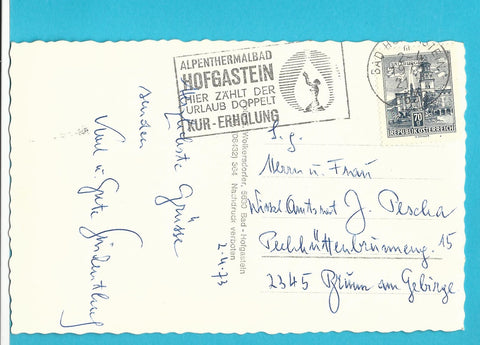 ALPENTHERMALBAD
HOFGASTEIN
HIER ZÄHLT DER
URLAUB DOPPELT
KUR-ERHOLUNG
BAD HOFGASTEIN
70
REPUBLIK ÖSTERREICH
S.g.
Herrn u. Frau
Wirkl. Amtsrat J. Pescha
Pechhüttenbrunneng. 15
2345 Brunn am Gebirge
Wolkersdorfer, 5630 Bad-Hofgastein
(06432) 304 Nachdruck verboten
2.4.73
Herzlichste Grüsse
senden
Karl u Grete